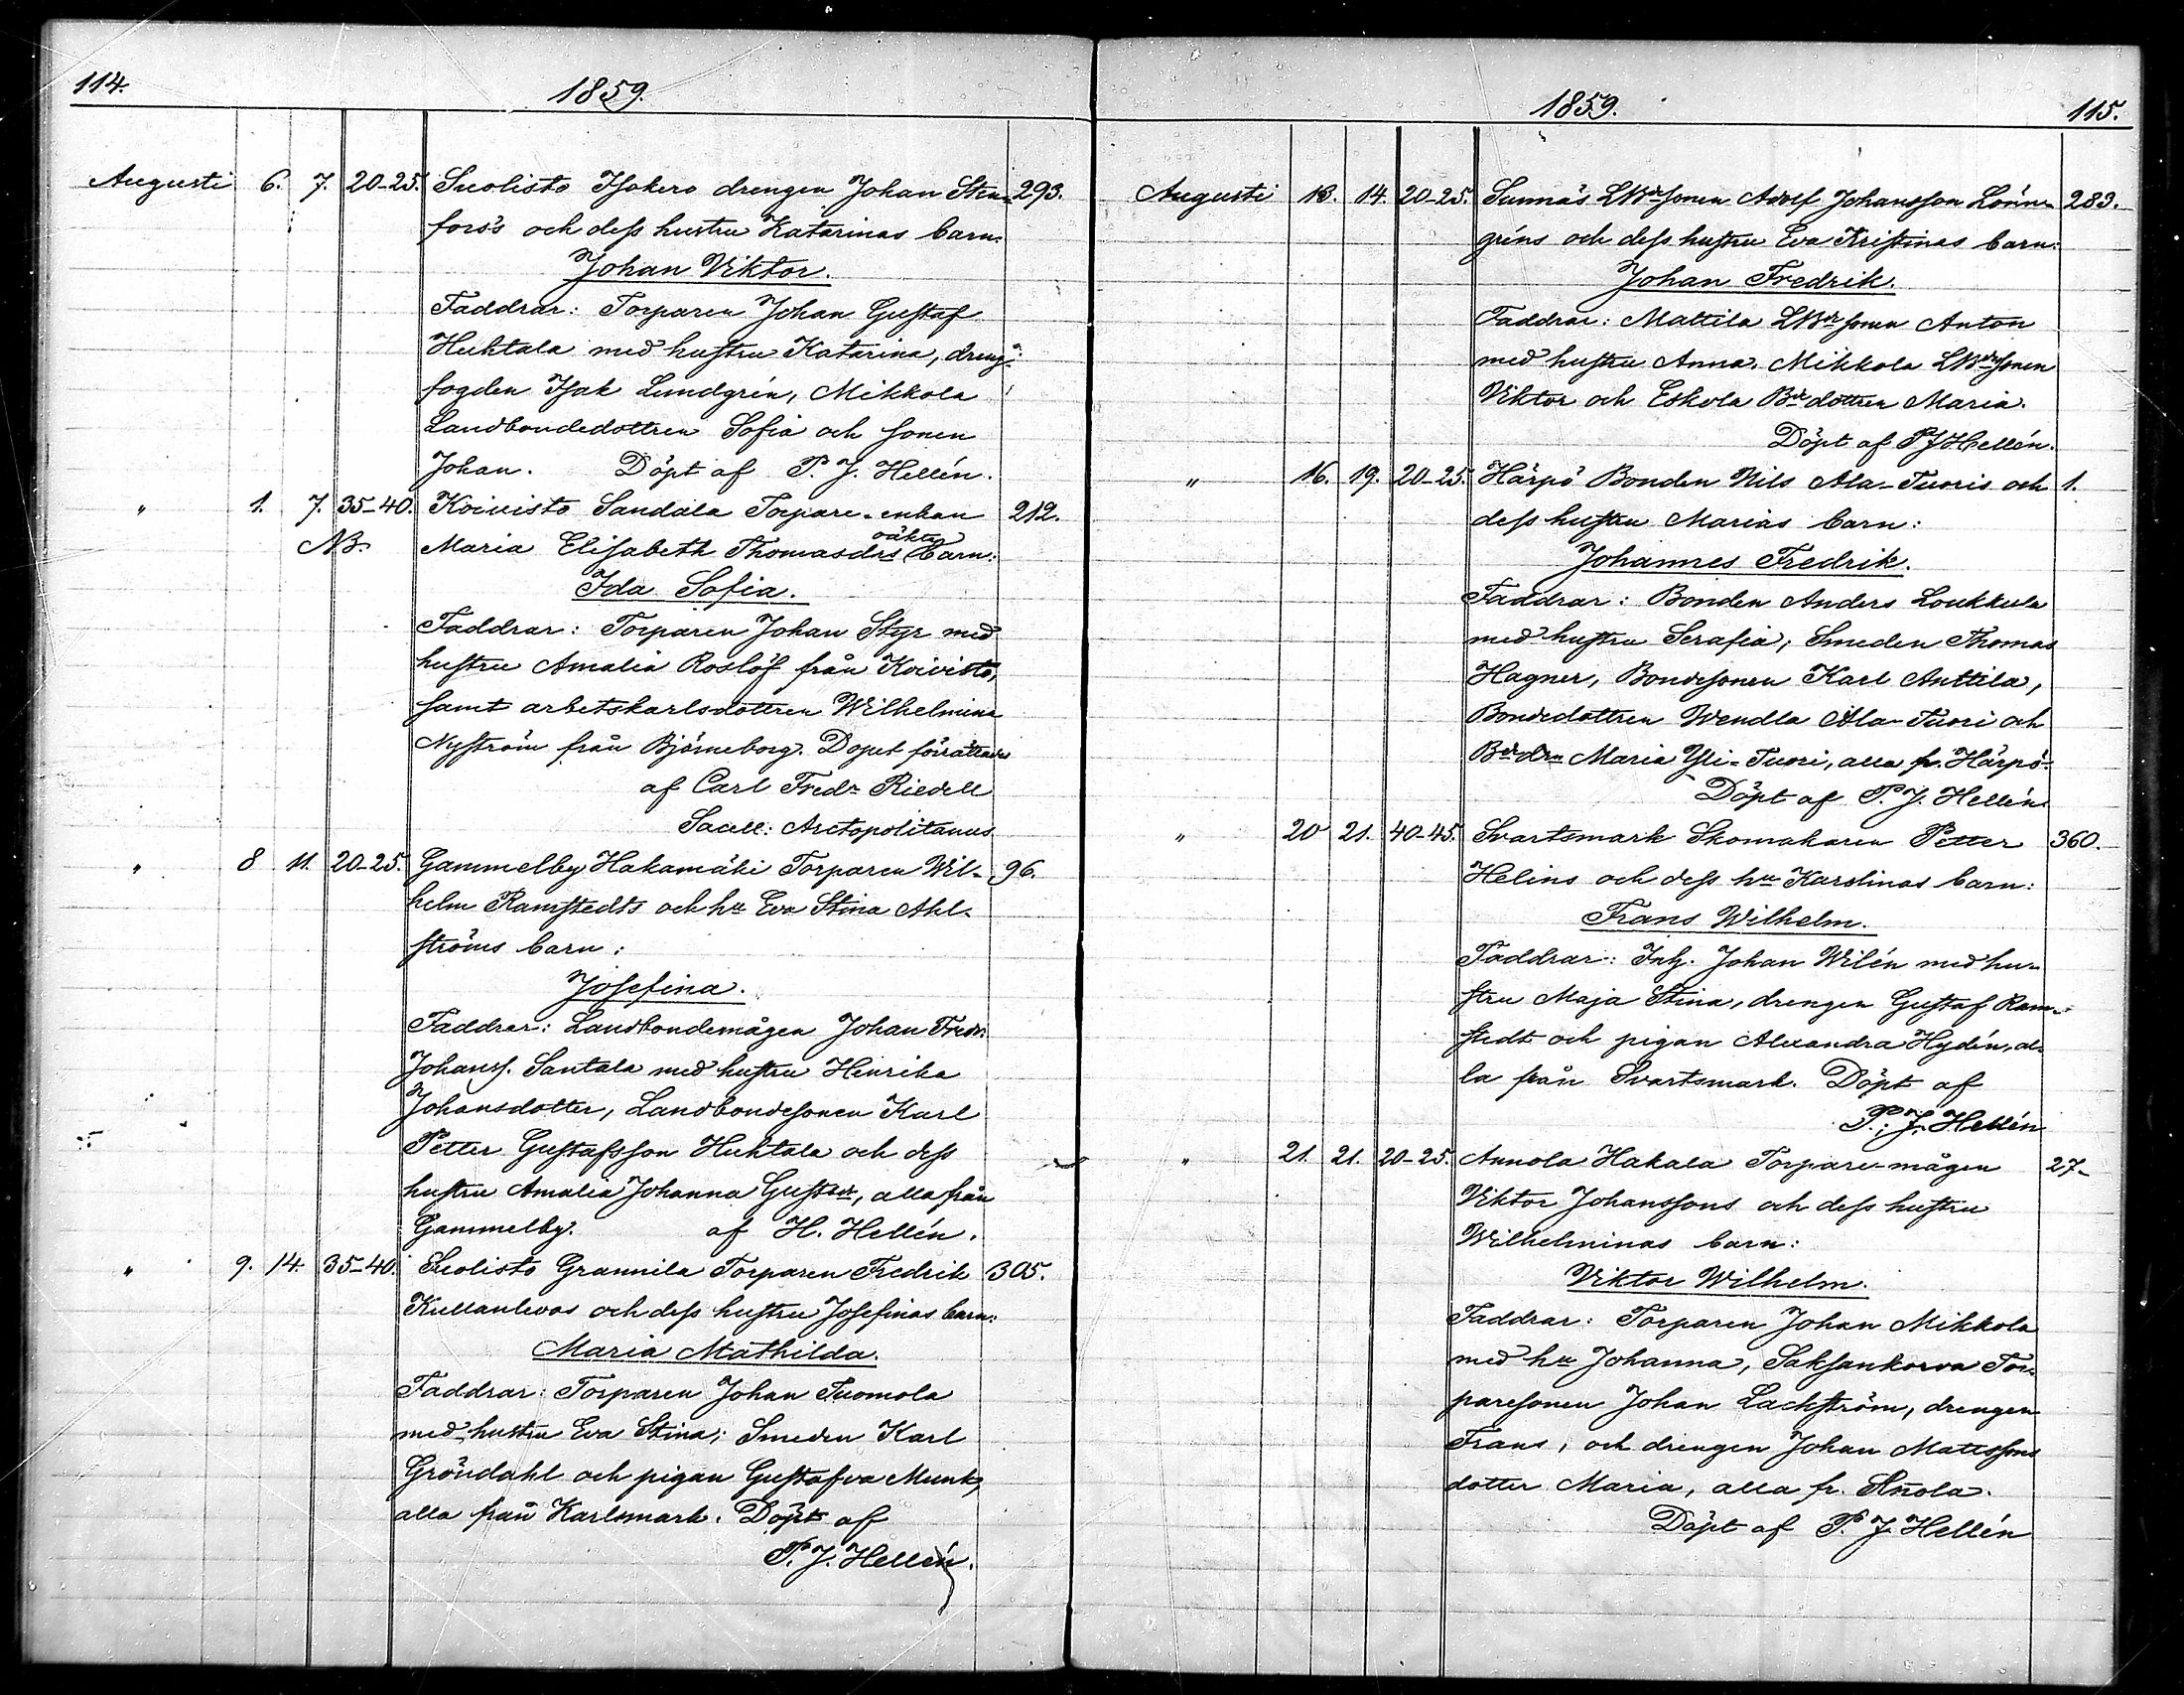 114.
1859.
Augusti 6. 7. 20-25. Suolisto Isokero drengen Johan Sten- 293.
fors's och dess hustru Katarinas barn:
Johan Viktor.
Faddrar: Torparen Johan Gustaf
Huhtala med hustru Katarina, dreng-
fogden Isak Lundgrén, Mikkola
Landbondedottren Sofia och sonen
Johan. Döpt af P. J. Hellén.
" 1. 7. 35-40. Koivisto Sandala Torpare-enkan 212.
oäkta
NB. Maria Elisabeth Thomasdrs barn:
Ida Sofia.
Faddrar: Torparen Johan Styr med
hustru Amalia Roslöf från Koivisto,
samt arbetskarlsdottren Wilhelmina
Nyström från Björneborg. Dopet förrättades
af Carl Fredr Riedell
Sacell: Arctopolitanus
" 8 11. 20-25. Gammelby Hakamäki Torparen Wil- 96.
helm Ramstedts och hu Eva Stina Ahl-
ströms barn:
Josefina.
Faddrar: Landbondemågen Johan Fredr.
Johanss. Santala med hustru Henrika
Johansdotter, Landbondesonen Karl
Petter Gustafsson Huhtala och dess
hustru Amalia Johanna Gustdr, alla från
Gammelby. af H. Hellén.
" 9. 14. 35-40. Suolisto Grannila Torparen Fredrik 305.
Kullanlevas och dess hustru Josefinas barn:
Maria Mathilda.
Faddrar: Torparen Johan Tuomola
med hustru Eva Stina; Smeden Karl
Gröndahl och pigan Gustafva Munk,
alla från Karlsmark. Döpt af
P. J. Hellén.
1859.
115.
Augusti 13. 14. 20-25. Sunnäs LBdesonen Adolf Johansson Lönn- 283.
gréns och dess hustru Eva Kristinas barn:
Johan Fredrik.
Faddrar: Mattila LBdesonen Anton
med hustru Anna, Mikkola LBdesonen
Viktor och Eskola Bde dottren Maria.
Döpt af P J Hellén.
" 16. 19. 20-25. Härpö Bonden Nils Ala-Tuoris och 1.
dess hustru Marias barn:
Johannes Fredrik.
Faddrar: Bonden Anders Loukkula
med hustru Serafia, Smeden Thomas
Hagner, Bondesonen Karl Anttila,
Bondedottren Wendla Ala-Tuori och
Bde drn Maria Yli-Tuori, alla fr. Härpö.
Döpt af P. J. Hellén
" 20 21. 40-45. Svartsmark Skomakaren Petter 360.
Helins och dess hu Karolinas barn:
Frans Wilhelm.
Faddrar: Inh. Johan Wilén med hu-
stru Maja Stina, drengen Gustaf Ram-
stedt och pigan Alexandra Hydén, al-
la från Svartsmark. Döpt af
P. J. Hellén
" 21. 21. 20-25. Annola Hakala Torpare-mågen 27-
Viktor Johanssons och dess hustru
Wilhelminas barn:
Viktor Wilhelm.
Faddrar: Torparen Johan Mikkola
med hu Johanna, Saksankorva Tor-
paresonen Johan Lackström, drengen
Frans, och drengen Johan Matssons
dotter Maria, alla fr. Añola.
Döpt af P. J. Hellén